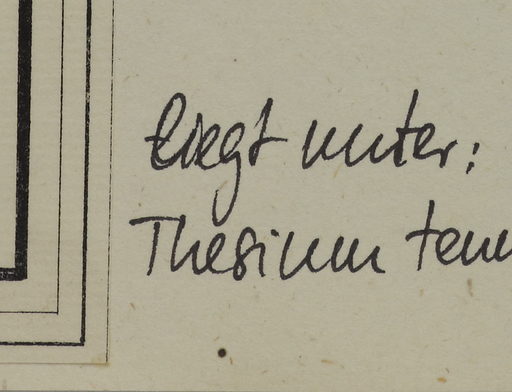 liegt unter:
Thesium tenu